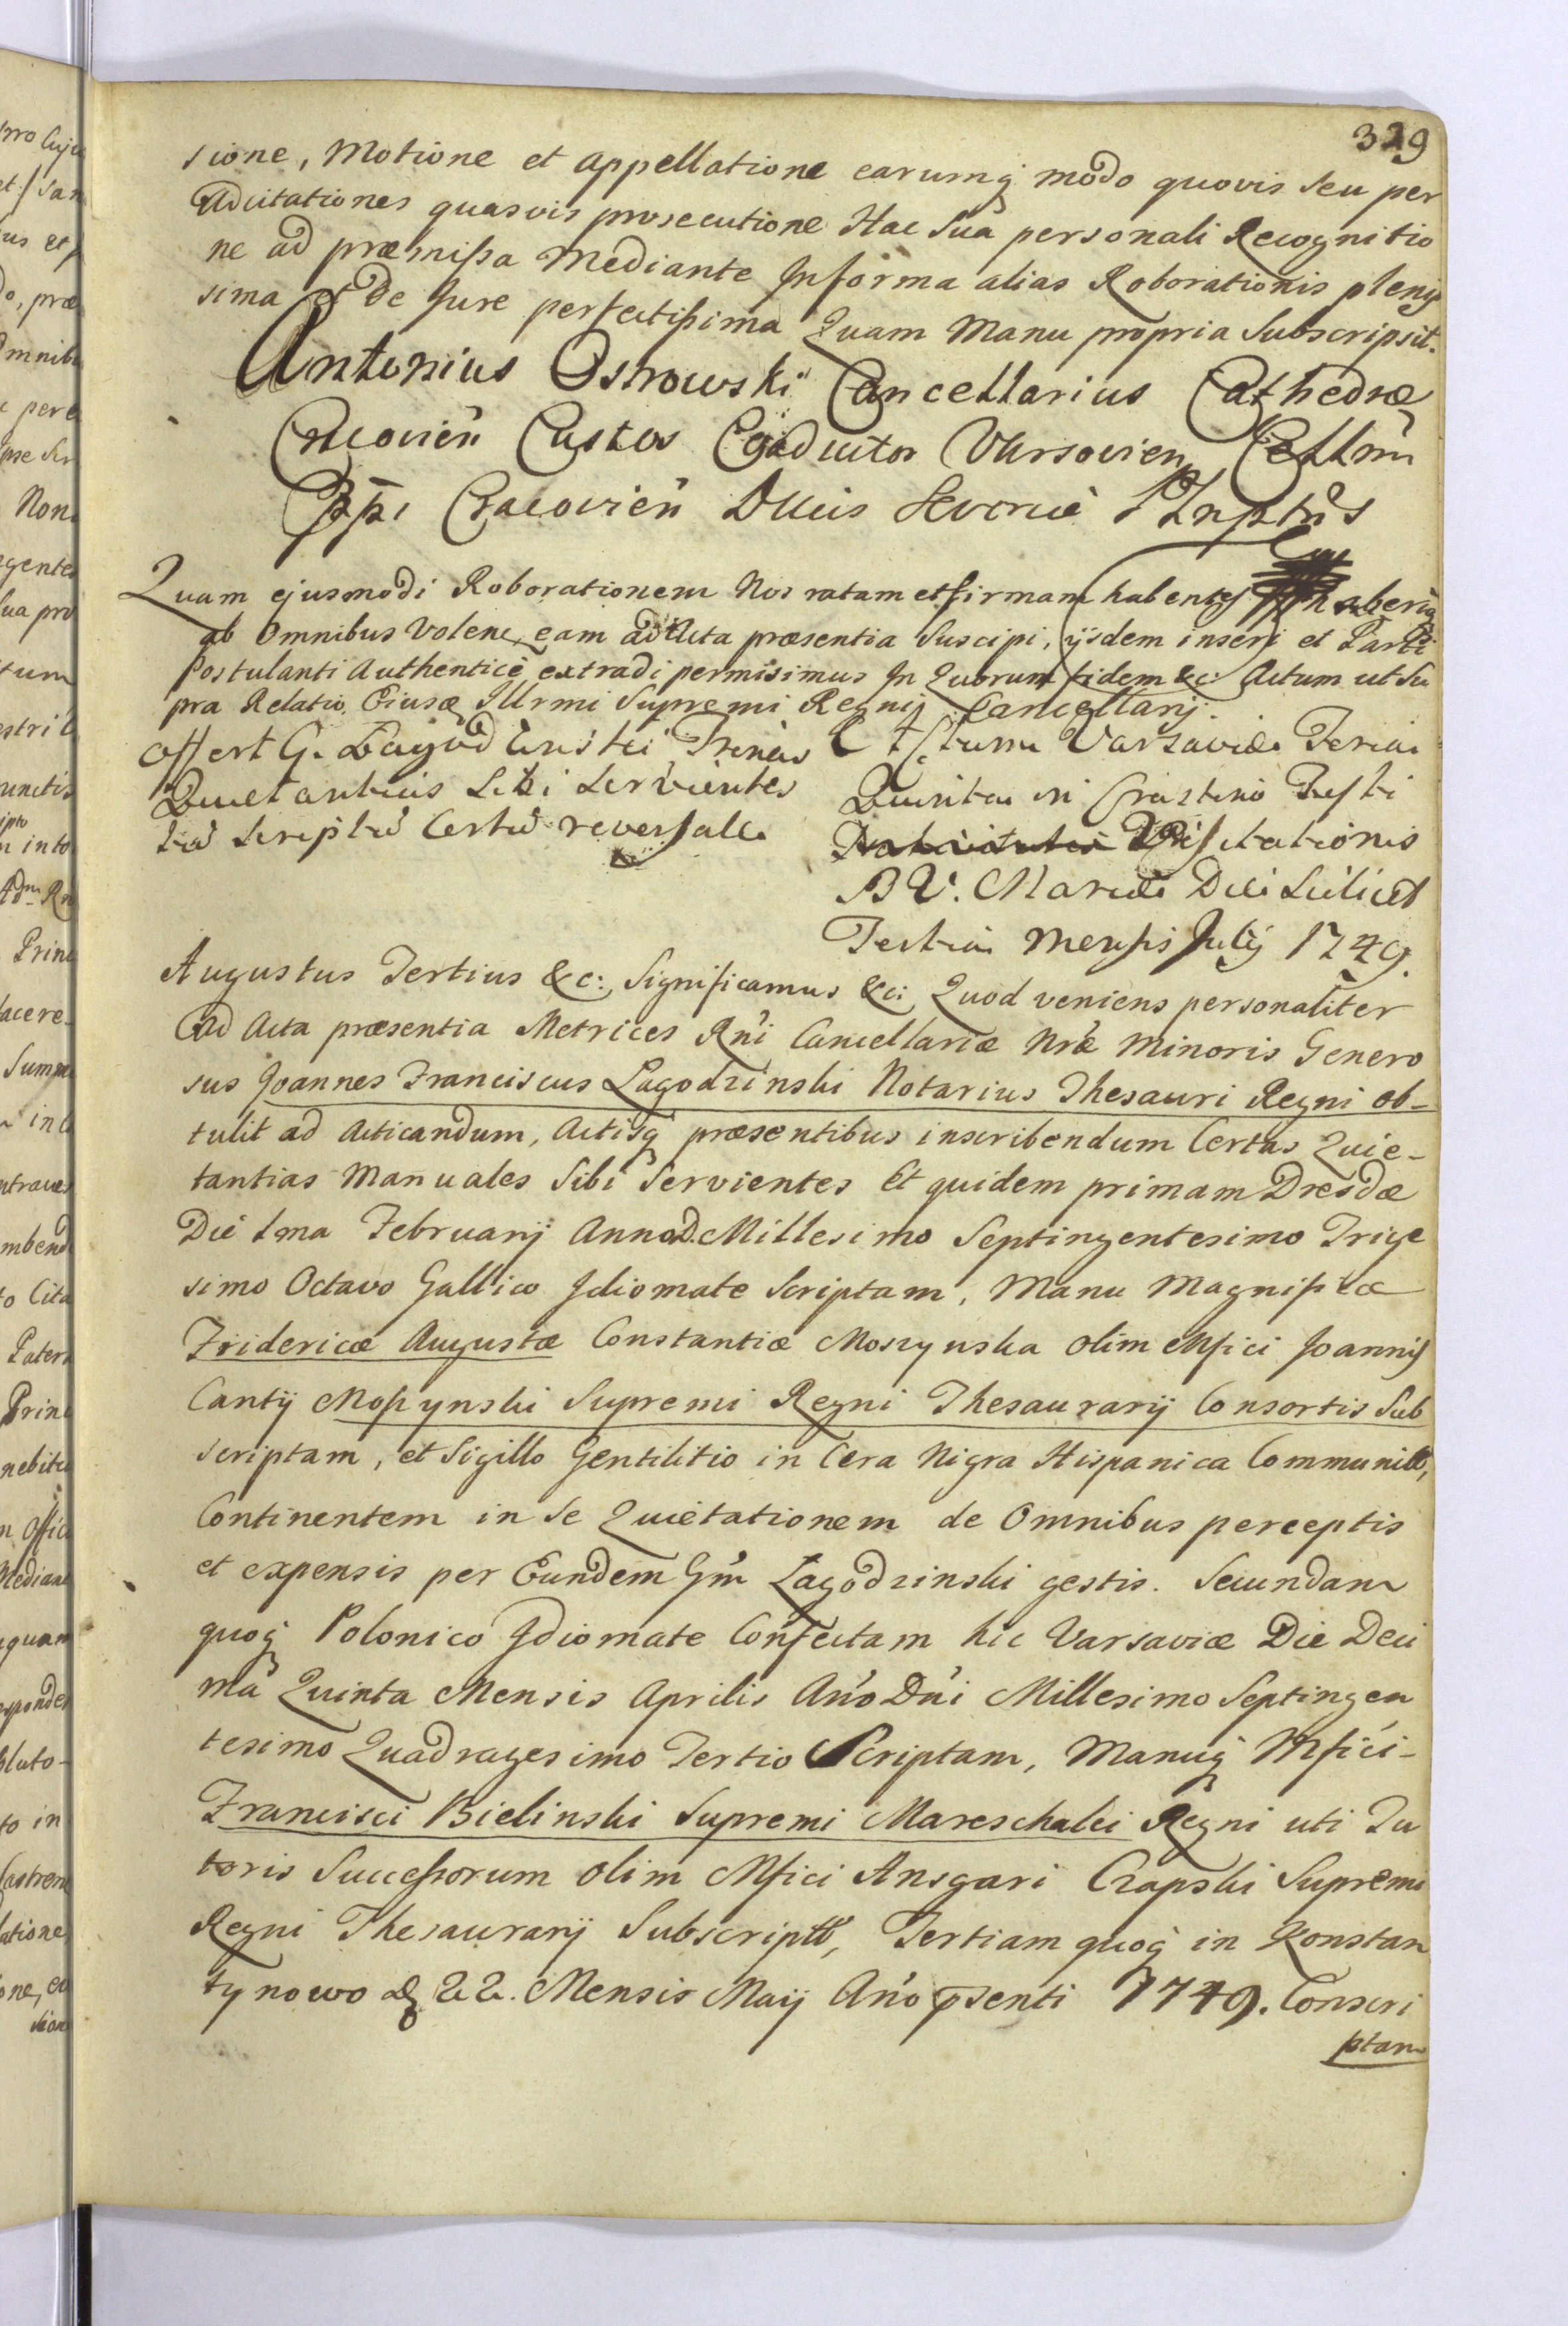 329
sione, Motione et appellatione earumq; modo quovis seu per
Adcitationes quasvis prosecutione Hac Sua personali Recognitio
ne ad præmissa Mediante Informa alias Roborationis plenis
sima et de Jure perfectissima Quam Manu propria Subscripsit.
Antonius Ostrowski Cancellarius Cathedræ
Cracovien Custos Coadiutor Varsovien Cellmi
Cracovien Ducis Severiæ
Quam ejusmodi Roborationem Nos ratam et firmam habentes haberiq
ab Omnibus Volen, eam ad Acta præsentia Suscipi, ijsdem inseri et Parti
Postulanti Authenticè extradi permisimus In Quorum fidem &c: Actum ut Su
pra Relatio Eiusd Illrmi Supremi Regnij Cancellarij.
Offert G. Łagod
Quietantias Sibi Servientes
reversale
Actum Varsaviæ Feria
Quinta in Crastino Festi
Nativitatis Visitationis
B V. Mariæ Die Scilicet
Tertia Mensis Julij 1749.
Augustus Tertius &c: Significamus &c: Quod veniens personaliter
Ad Acta præsentia Metrices Rni Cancellariæ Nræ Minoris Genero
sus Joannes Franciscus Łagodzinski Notarius Thesauri Regni ob-
tulit ad Acticandum, Actisq præsentibus inscribendum Certas Quie-
tantias Manuales Sibi Servientes Et quidem primam Dresdæ
Die 1ma Februarij Anno D. Millesimo Septingentesimo Trige
simo Octavo Gallico Idiomate Scriptam, Manu Magnificæ
Fridericæ Augustæ Constantiæ Moszynska olim Mfici Joannis
Cantij Moszynski Supremi Regni Thesaurarij Consortis Sub
scriptam, et Sigillo Gentilitio in Cera Nigra Hispanica Communitt,
Continentem in se Quietationem de Omnibus perceptis
et expensis per Eundem Gm Łagodzinski gestis. Secundam
quoq Polonico Idiomate Confectam hic Varsaviæ Die Deci
ma Quinta Mensis Aprilis Ano Dni Millesimo Septingen
tesimo Quadragesimo Tertio Scriptam, Manuq Mfici-
Francisci Bielinski Supremi Mareschalci Regni uti Tu
toris Successorum olim Mfici Ansgari Czapski Supremi
Regni Thesaurarij Subscriptt, Tertiam quoq in Konstan
tynowo d 22. Mensis Maij Ano psenti 1749. Conscri
ptam